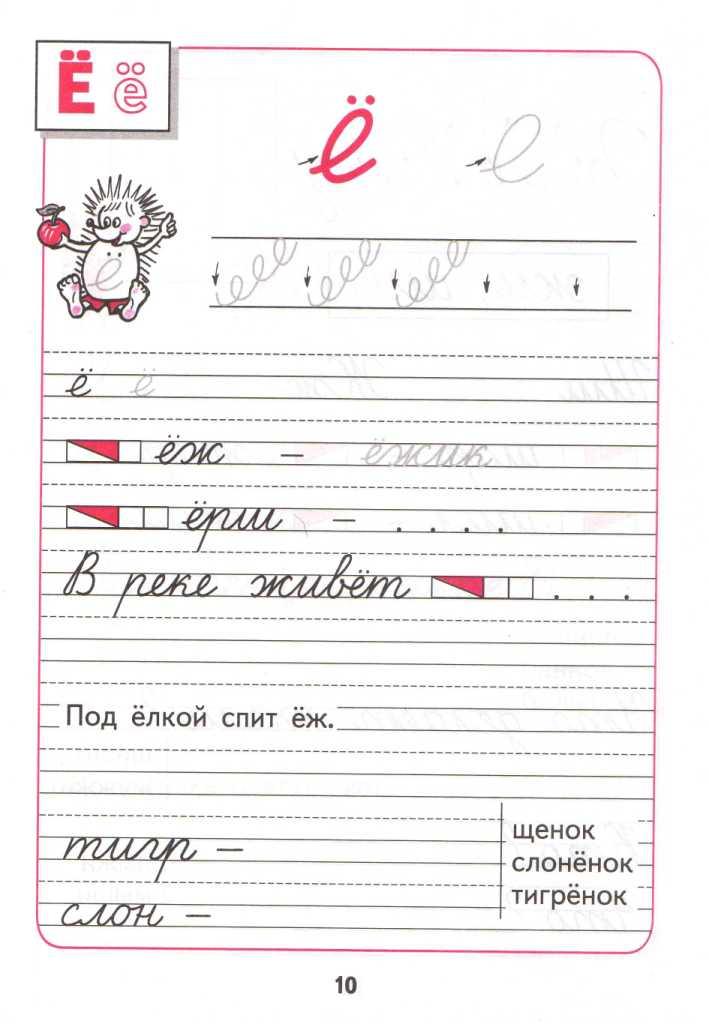 Ё ё
ё е
е
еее еее еее
ё ё
ёж – ёжик
ёрш – . . . .
В реке живёт . . .
Под ёлкой спит ёж.
тигр –
слон –
щенок
слонёнок
тигрёнок
10